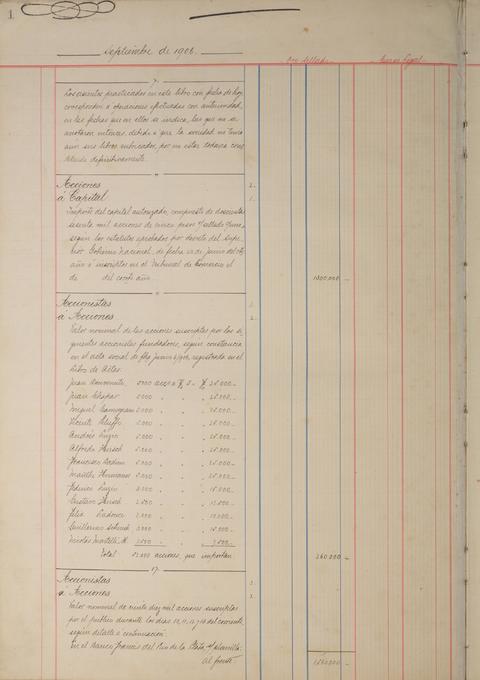 1
Septiembre de 1906.
Oro Sellado
Curso Legal
Los asientos practicados en este libro con fecha de hoy,
corresponden a operaciones efectuadas con anterioridad,
en las fechas que en ellos se indica, las que no se
anotaron entonces, debido a que la sociedad no tenia
aun sus libros rubricados, por no estar todavia cons
tituida definitivamente.
Acciones 2
á Capital 1
Importe del capital autorizado, compuesto de doscientas
sesenta mil acciones de cinco pesos o/sellado c/una,
según los estatutos aprobados por decreto del Supe-
rior Gobierno Nacional, de fecha 22 de Junio del cte
año é inscriptos en el Tribunal de Comercio el
de del corrte año. 1300.000 -
Accionistas 3
á Acciones 2
Valor nominal de las acciones suscriptas por los si-
guientes accionistas fundadores, según constancia
en el acta social de fha Junio 6/906, registrada en el
Libro de Actas.
Juan 5000 acc. a $ 5 - $ 25.000.-
Juan 5.000 " " 25.000.-
Miguel 5.000 " " 25.000.-
Vicente 5.000 " " 25.000.-
Andrés 5.000 " " 25.000.-
Alfredo Hirsch 5.000 " " 25.000.-
Francisco 5.000 " " 25.000.-
Hermanos 5.000 " " 25.000.-
Federico 3.000 " " 15.000.-
Gustavo Hirsch 2.500 " " 12.500.-
Félix 2.000 " " 10.000.-
Guillermo 3.000 " " 15.000.-
Nicolás 1.500 " " 7.500.-
Total 52.000 acciones, que importan 260.000 -
17
Accionistas 3
á Acciones 2
Valor nominal de veinte diez mil acciones suscriptas
por el público durante los dias del corriente
según detalle a continuación:
En el Banco Francés del Rio de la Plata s/planilla.
Al frente 1560.000 -